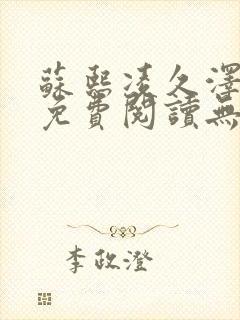 蘇熙凌久澤
免費閱讀無
李政澄